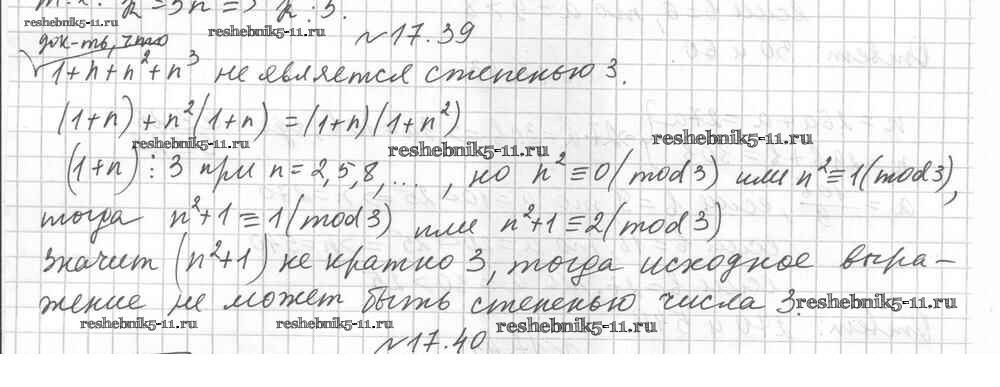 т.к. k = 3n => k ⋮ 3.
reshebnik5-11.ru reshebnik5-11.ru
№17.39
док-ть, что
1+n+n²+n³ не является степенью 3.
(1+n)+n²(1+n) = (1+n)(1+n²)
reshebnik5-11.ru reshebnik5-11.ru reshebnik5-11.ru
(1+n) ⋮ 3 при n = 2,5,8,..., но n² ≡ 0(mod 3) или n² ≡ 1(mod 3),
тогда n²+1 ≡ 1(mod 3) или n²+1 ≡ 2(mod 3)
Значит (n²+1) не кратно 3, тогда исходное выра-
жение не может быть степенью числа 3. reshebnik5-11.ru
reshebnik5-11.ru reshebnik5-11.ru reshebnik5-11.ru
№17.40